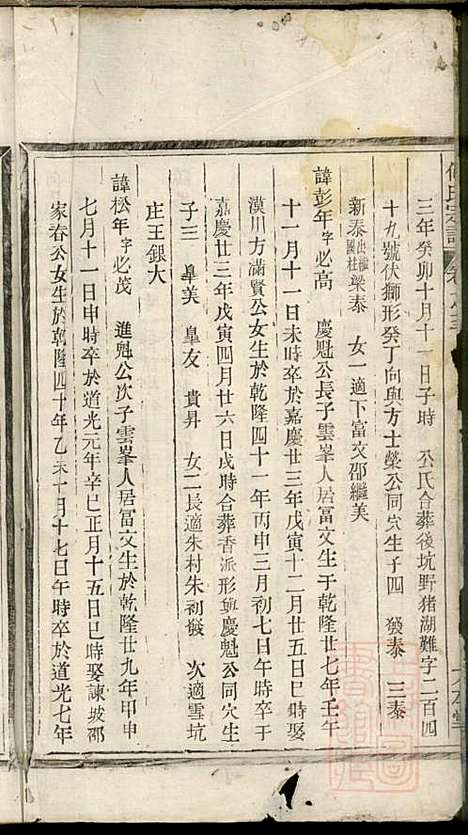 三年癸卯十月十一日子時 公氏合葬後坑野猪湖難字二百四
十九號伏獅形癸丁向與方士榮公同穴生子四 發泰 三泰
新泰出繼國柱梁泰 女一適下富文邵繼美
諱彭年字必高 慶魁公長子雲峯人居富文生于乾隆廿七年壬午
十一月十一日未時卒於嘉慶廿三年戊寅十二月廿五日巳時娶
漠川方滿賢公女生於乾隆四十一年丙申三月初七日午時卒于
嘉慶廿三年戊寅四月廿六日戌時合葬香派形與慶魁公同穴生
子三 皐美 皇友 貴昇 女二長適朱村朱初 次適雪坑
庄王銀大
諱松年字必茂 進魁公次子雲峯人居富文生於乾隆廿九年甲申
七月十一日申時卒於道光元年辛巳正月十五日巳時娶諫坡邵
家春公女生於乾隆四十年乙未十月十七日午時卒於道光七年